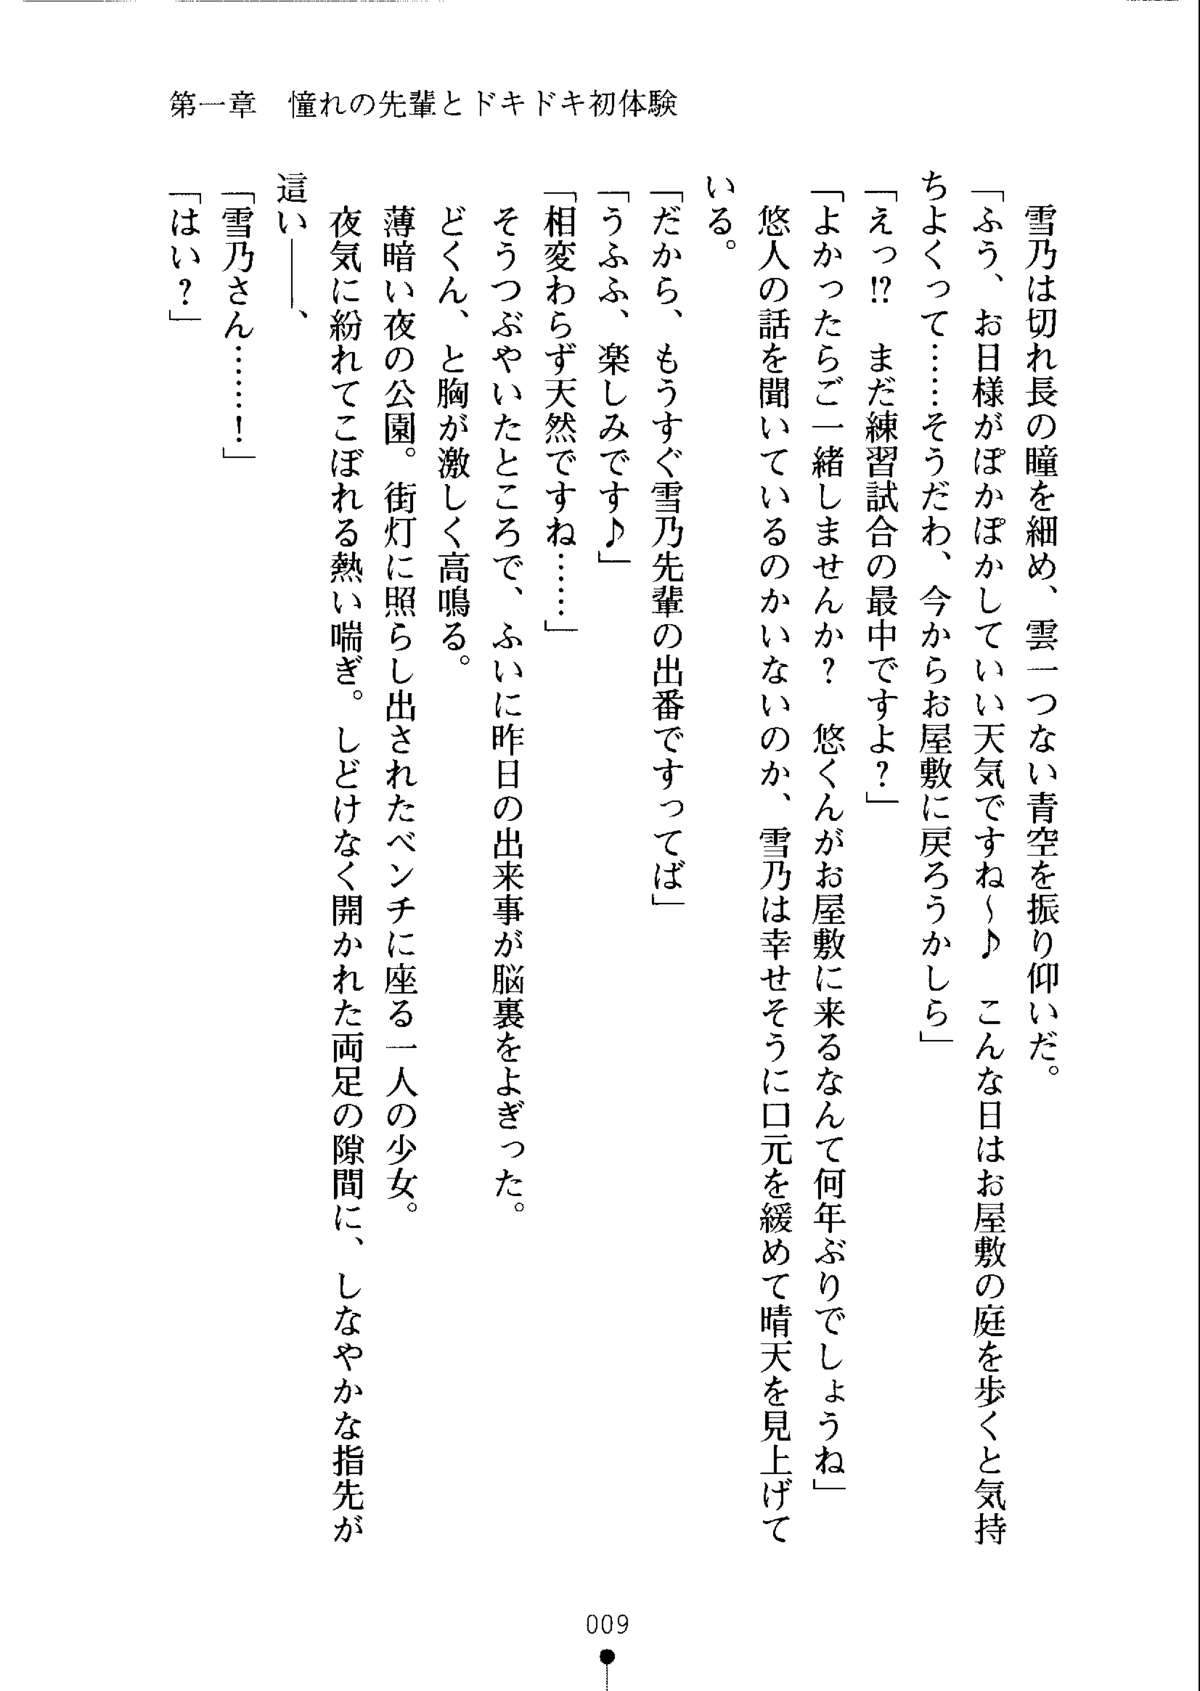 第一章　憧れの先輩とドキドキ初体験
雪乃は切れ長の瞳を細め、雲一つない青空を振り仰いだ。
「ふう、お日様がぽかぽかしていい天気ですね～♪　こんな日はお屋敷の庭を歩くと気持
ちよくって……そうだわ、今からお屋敷に戻ろうかしら」
「えっ!?　まだ練習試合の最中ですよ？」
「よかったらご一緒しませんか？　悠くんがお屋敷に来るなんて何年ぶりでしょうね」
悠人の話を聞いているのかいないのか、雪乃は幸せそうに口元を緩めて晴天を見上げて
いる。
「だから、もうすぐ雪乃先輩の出番ですってば」
「うふふ、楽しみです♪」
「相変わらず天然ですね……」
そうつぶやいたところで、ふいに昨日の出来事が脳裏をよぎった。
どくん、と胸が激しく高鳴る。
薄暗い夜の公園。街灯に照らし出されたベンチに座る一人の少女。
夜気に紛れてこぼれる熱い喘ぎ。しどけなく開かれた両足の隙間に、しなやかな指先が
這い――、
「雪乃さん……！」
「はい？」
009